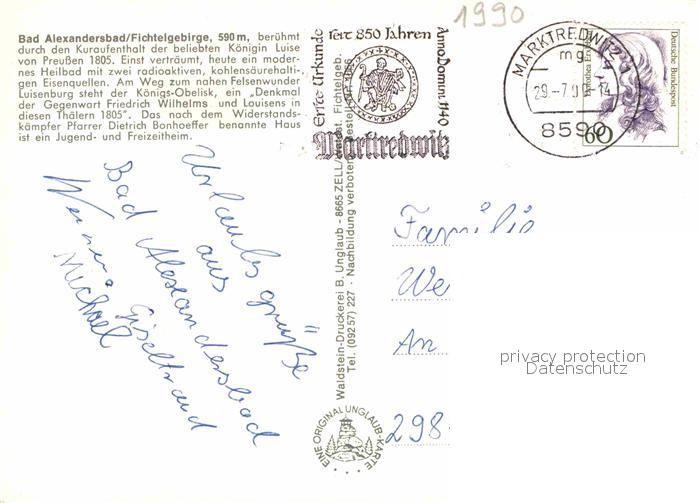 Bad Alexandersbad/Fichtelgebirge, 590 m, berühmt
durch den Kuraufenthalt der beliebten Königin Luise
von Preußen 1805. Einst verträumt, heute ein moder-
nes Heilbad mit zwei radioaktiven, kohlensäurehalti-
gen Eisenquellen. Am Weg zum nahen Felsenwunder
Luisenburg steht der Königs-Obelisk, ein „Denkmal
der Gegenwart Friedrich Wilhelms und Louisens in
diesen Thälern 1805". Das nach dem Widerstands-
kämpfer Pfarrer Dietrich Bonhoeffer benannte Haus
ist ein Jugend- und Freizeitheim.
Urlaubsgrüße
aus
Bad Alexandersbad
Werner, Giseltraud
Michael
Waldstein-Druckerei B. Unglaub - 8665 ZELL/
Tel. (09257) 227 · Nachbildung verboten
EINE ORIGINAL UNGLAUB-KARTE
Erste Urkunde
fert 850 Jahren
Anno Domini 1140
Marktredwitz
1990
MARKTREDWITZ
mg
29.-7.90-14
8590
Deutsche Bundespost
60
Familie
We
An
298
privacy protection
Datenschutz